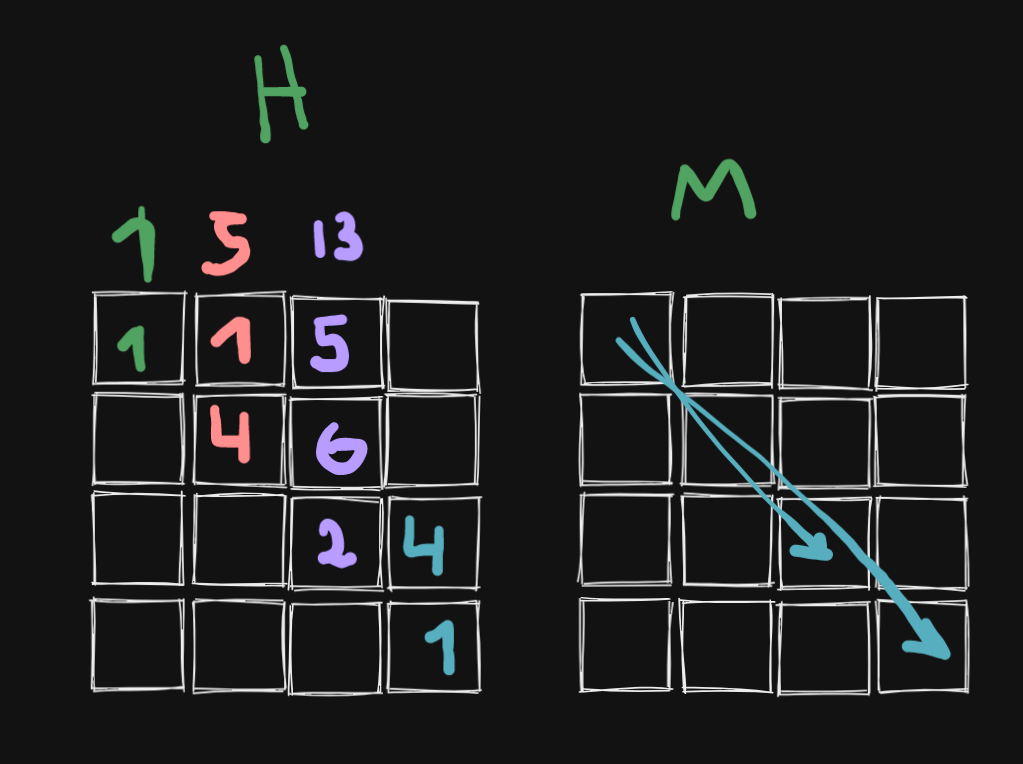 H
M
1 5 13
1 1 5
4 6
2 4
1